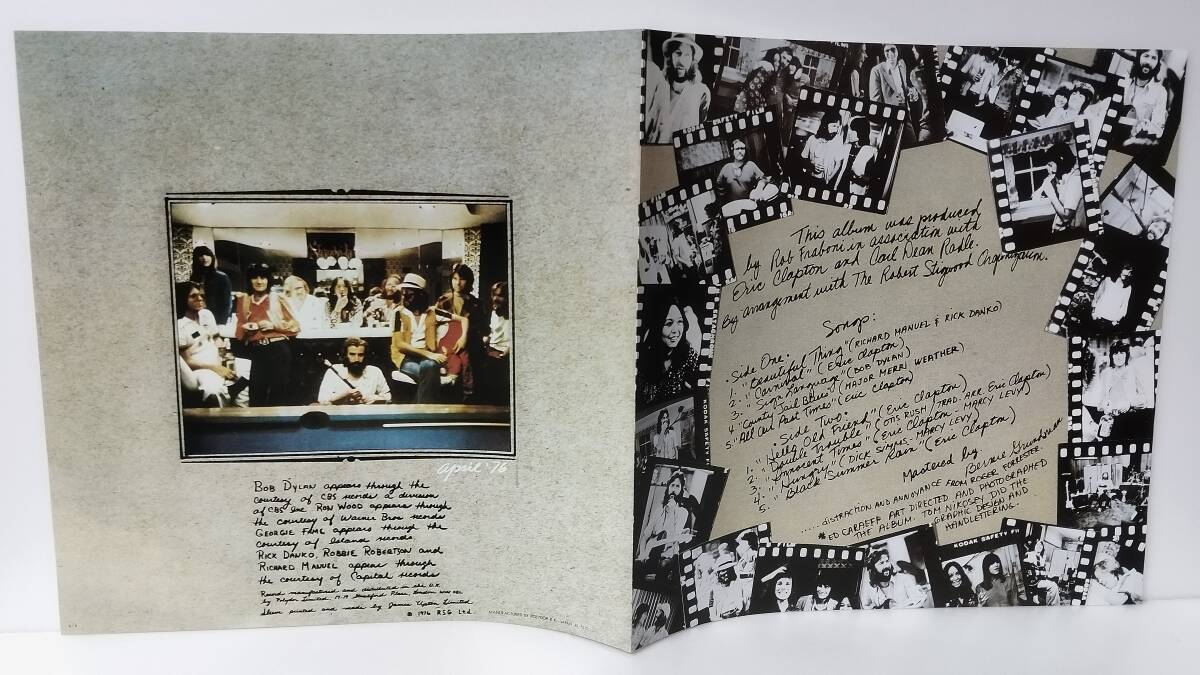 april '76
BOB DYLAN appears through the
courtesy of CBS records a division
of CBS Inc. RON WOOD appears through
the courtesy of Warner Bros records
GEORGIE FAME appears through the
courtesy of Island records.
RICK DANKO, ROBBIE ROBERTSON and
RICHARD MANUEL appear through
the courtesy of Capitol records
Record manufactured and distributed in the U.K.
by Polydor Limited, 17-19 Stratford Place, London
Sleeve printed and made by James Upton Limited
© 1976 RSO Ltd.
MANUFACTURED BY POLYDOR K.K., JAPAN
KODAK SAFETY FILM
This album was produced
by Rob Fraboni in association with
Eric Clapton and Carl Dean Radle.
By arrangement with The Robert Stigwood Organization.
Songs:
• Side One •
1. "Beautiful Thing" (RICHARD MANUEL & RICK DANKO)
2. "Carnival" (Eric Clapton)
3. "Sign Language" (BOB DYLAN)
4. "County Jail Blues" (MAJOR MERRI WEATHER)
5. "All Our Past Times" (Eric Clapton)
• Side Two •
1. "Hello Old Friend" (Eric Clapton)
2. "Double Trouble" (OTIS RUSH / TRAD-ARR. Eric Clapton)
3. "Innocent Times" (Eric Clapton - MARCY LEVY)
4. "Hungry" (DICK SIMMS - MARCY LEVY)
5. "Black Summer Rain" (Eric Clapton)
Mastered by
Bernie Grundman
.....DISTRACTION AND ANNOYANCE FROM ROGER FORRESTER.
*ED CARAEFF ART DIRECTED AND PHOTOGRAPHED
THE ALBUM. TOM NIKOSEY DID THE
GRAPHIC DESIGN AND
HANDLETTERING.
KODAK SAFETY
KODAK SAFETY FIL